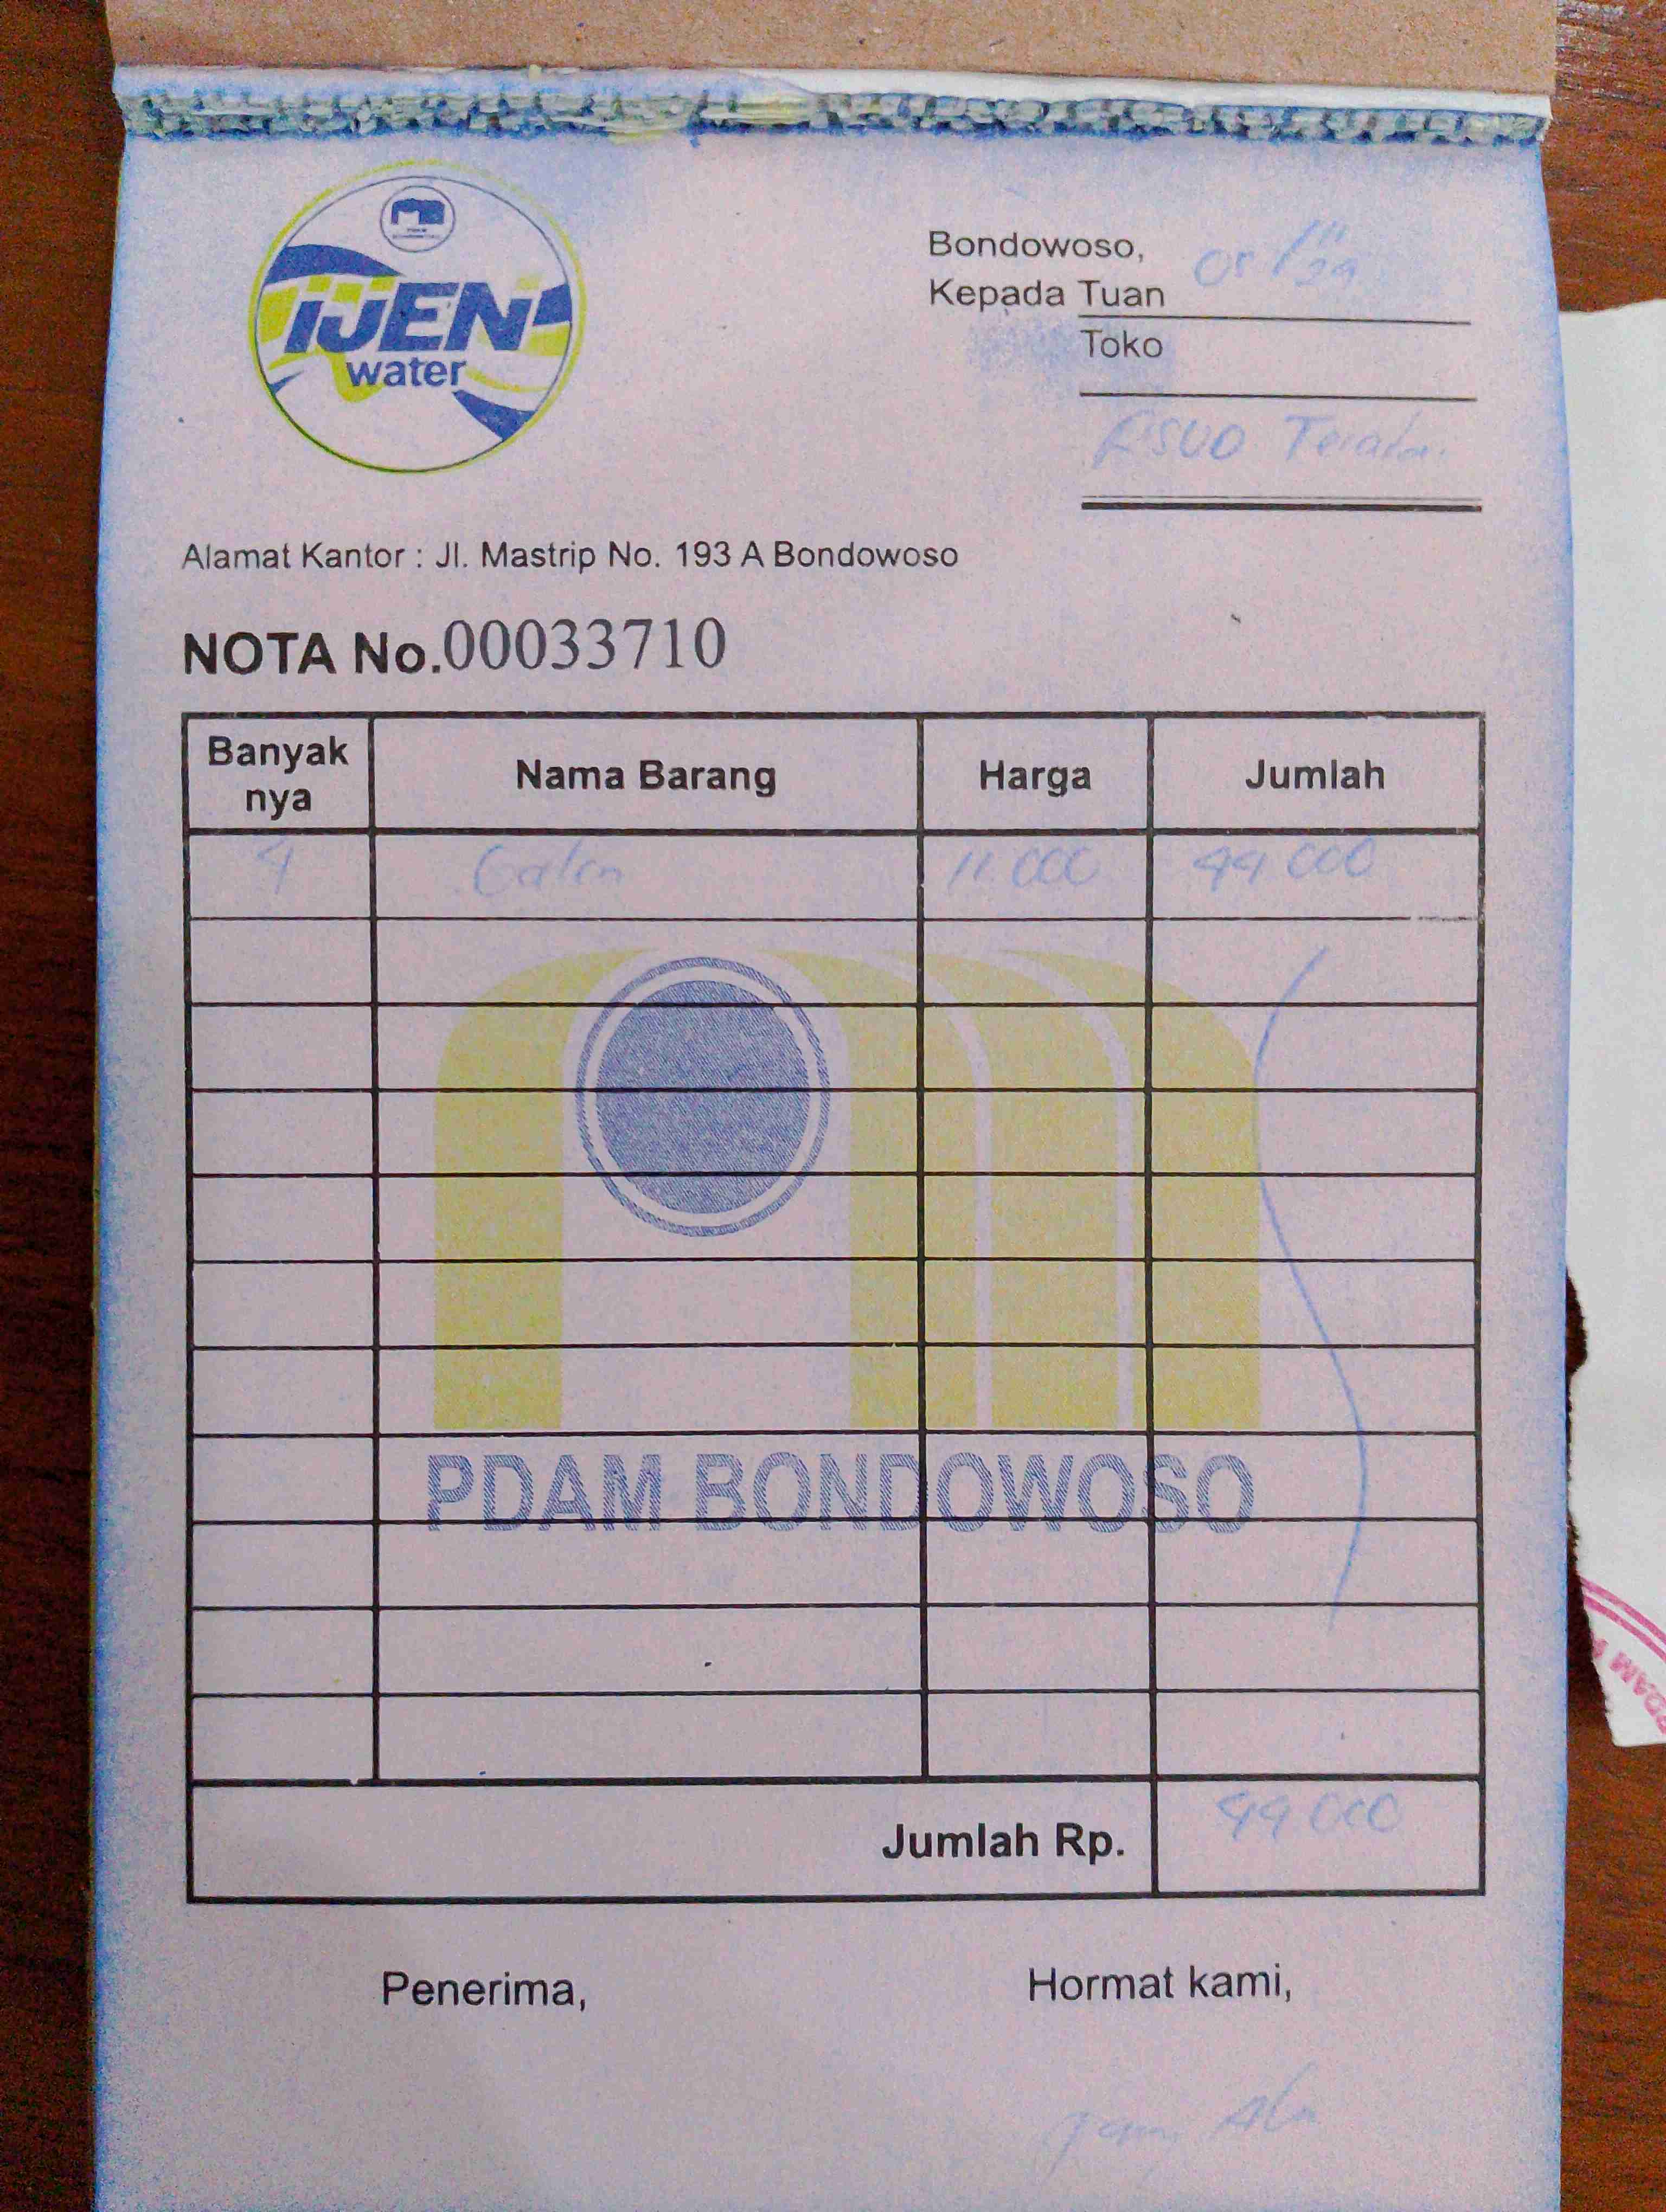 IJEN
water
Bondowoso, 05/11
Kepada Tuan
Toko
RSUD Teratai
Alamat Kantor : Jl. Mastrip No. 193 A Bondowoso
NOTA No.00033710
Banyak nya Nama Barang Harga Jumlah
4 Galon 11.000 44 000
PDAM BONDOWOSO
Jumlah Rp. 44 000
Penerima, Hormat kami,